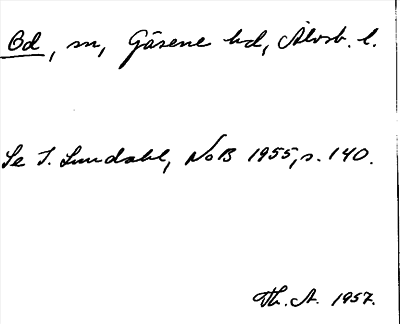 Od, sn, Gäsene hd, Älvsb. l.
Se I. Lundahl, NoB 1955, s. 140.
Th. A. 1957.